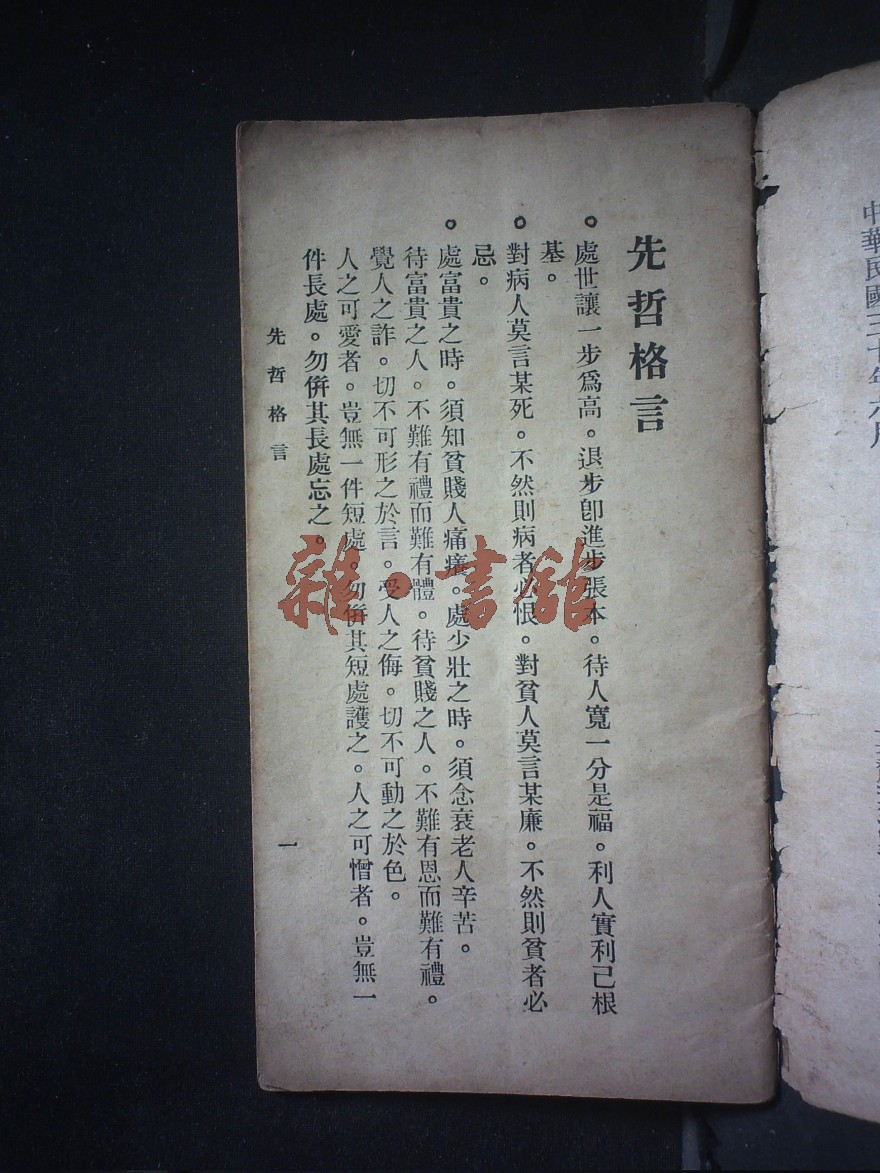 中華民國三十年六月
先哲格言
。處世讓一步爲高。退步卽進步張本。待人寬一分是福。利人實利己根
基。
。對病人莫言某死。不然則病者必恨。對貧人莫言某廉。不然則貧者必
忌。
。處富貴之時。須知貧賤人痛癢。處少壯之時。須念衰老人辛苦。
待富貴之人。不難有禮而難有體。待貧賤之人。不難有恩而難有禮。
覺人之詐。切不可形之於言。受人之侮。切不可動之於色。
人之可愛者。豈無一件短處。勿併其短處護之。人之可憎者。豈無一
件長處。勿併其長處忘之。
先哲格言
一
雜·書館